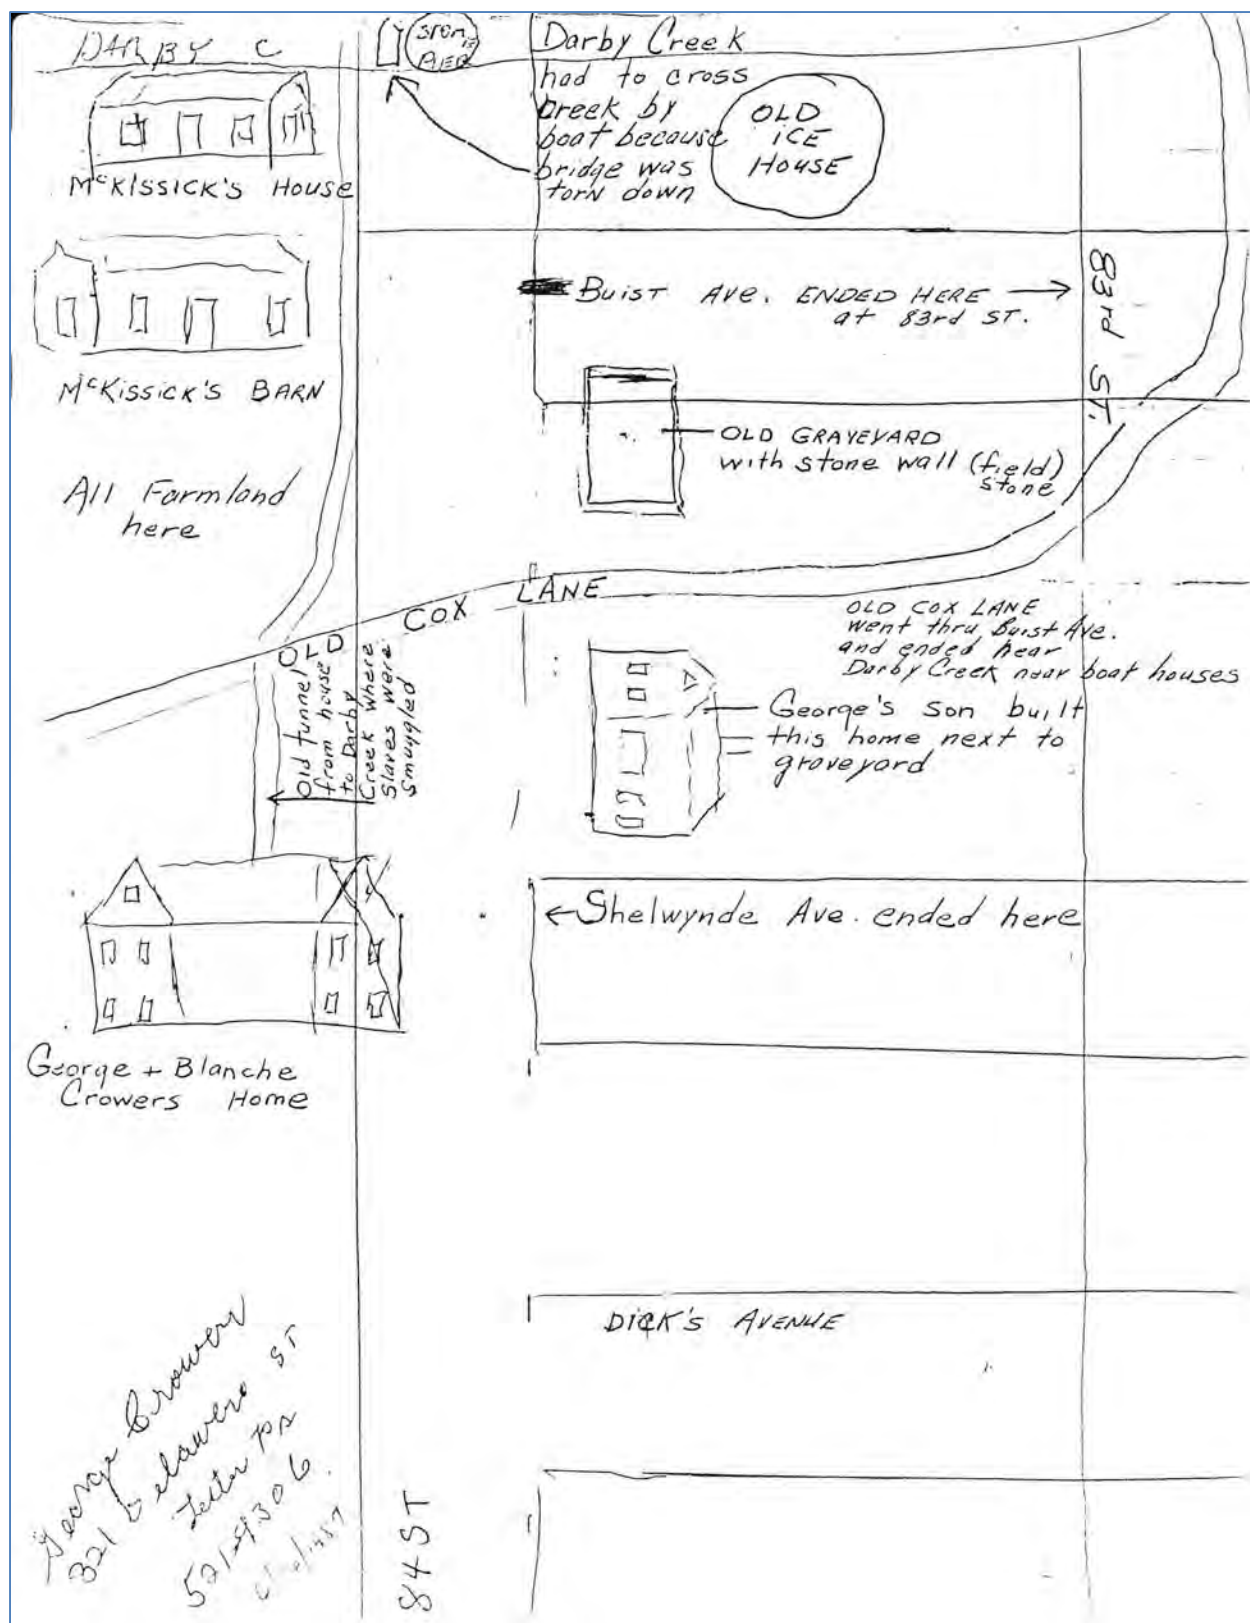 DARBY C
STONE
PIER
Darby Creek
had to cross
creek by
boat because
bridge was
torn down
OLD
ICE
HOUSE
McKISSICK'S HOUSE
BUIST AVE. ENDED HERE
at 83rd ST.
83rd ST.
McKISSICK'S BARN
OLD GRAVEYARD
with stone wall (field)
stone
All Farmland
here
OLD COX LANE
OLD COX LANE
went thru Buist Ave.
and ended near
Darby Creek near boat houses
Old tunnel
from house
to Darby
Creek where
Slaves were
Smuggled
George's son built
this home next to
graveyard
Shelwynde Ave. ended here
George + Blanche
Crowers Home
DICK'S AVENUE
George Crowers
321 Delaware ST
Lester PA
521-4306
84 ST